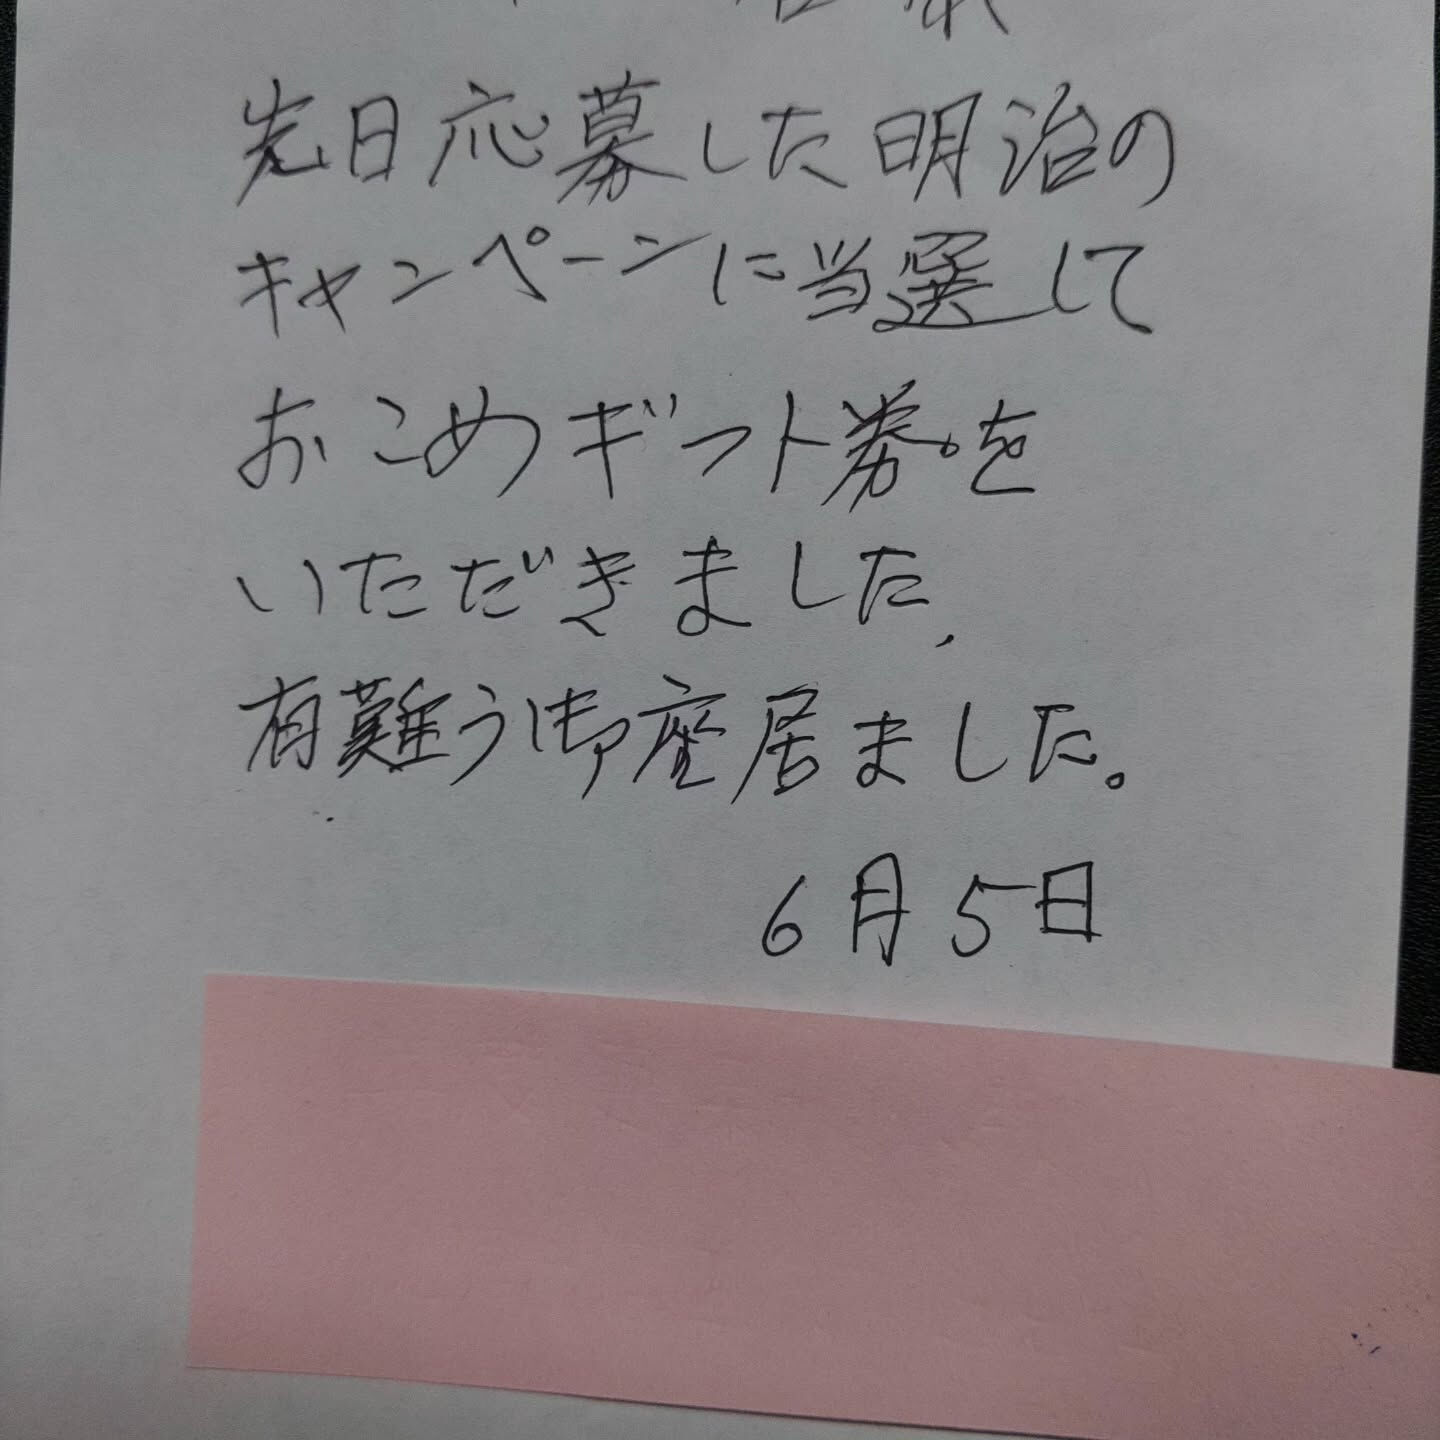 先日応募した明治の
キャンペーンに当選して
おこめギフト券を
いただきました,
有難う御座居ました。
6月5日